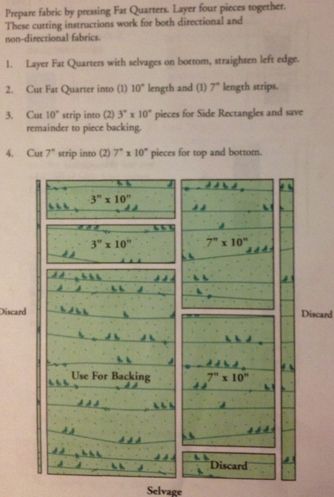 Prepare fabric by pressing Fat Quarters. Layer four pieces together.
These cutting instructions work for both directional and
non-directional fabrics.
1. Layer Fat Quarters with selvages on bottom, straighten left edge.
2. Cut Fat Quarter into (1) 10" length and (1) 7" length strips.
3. Cut 10" strip into (2) 3" x 10" pieces for Side Rectangles and save
remainder to piece backing.
4. Cut 7" strip into (2) 7" x 10" pieces for top and bottom.
3" x 10"
3" x 10"
7" x 10"
Discard
Discard
Use For Backing
7" x 10"
Discard
Selvage